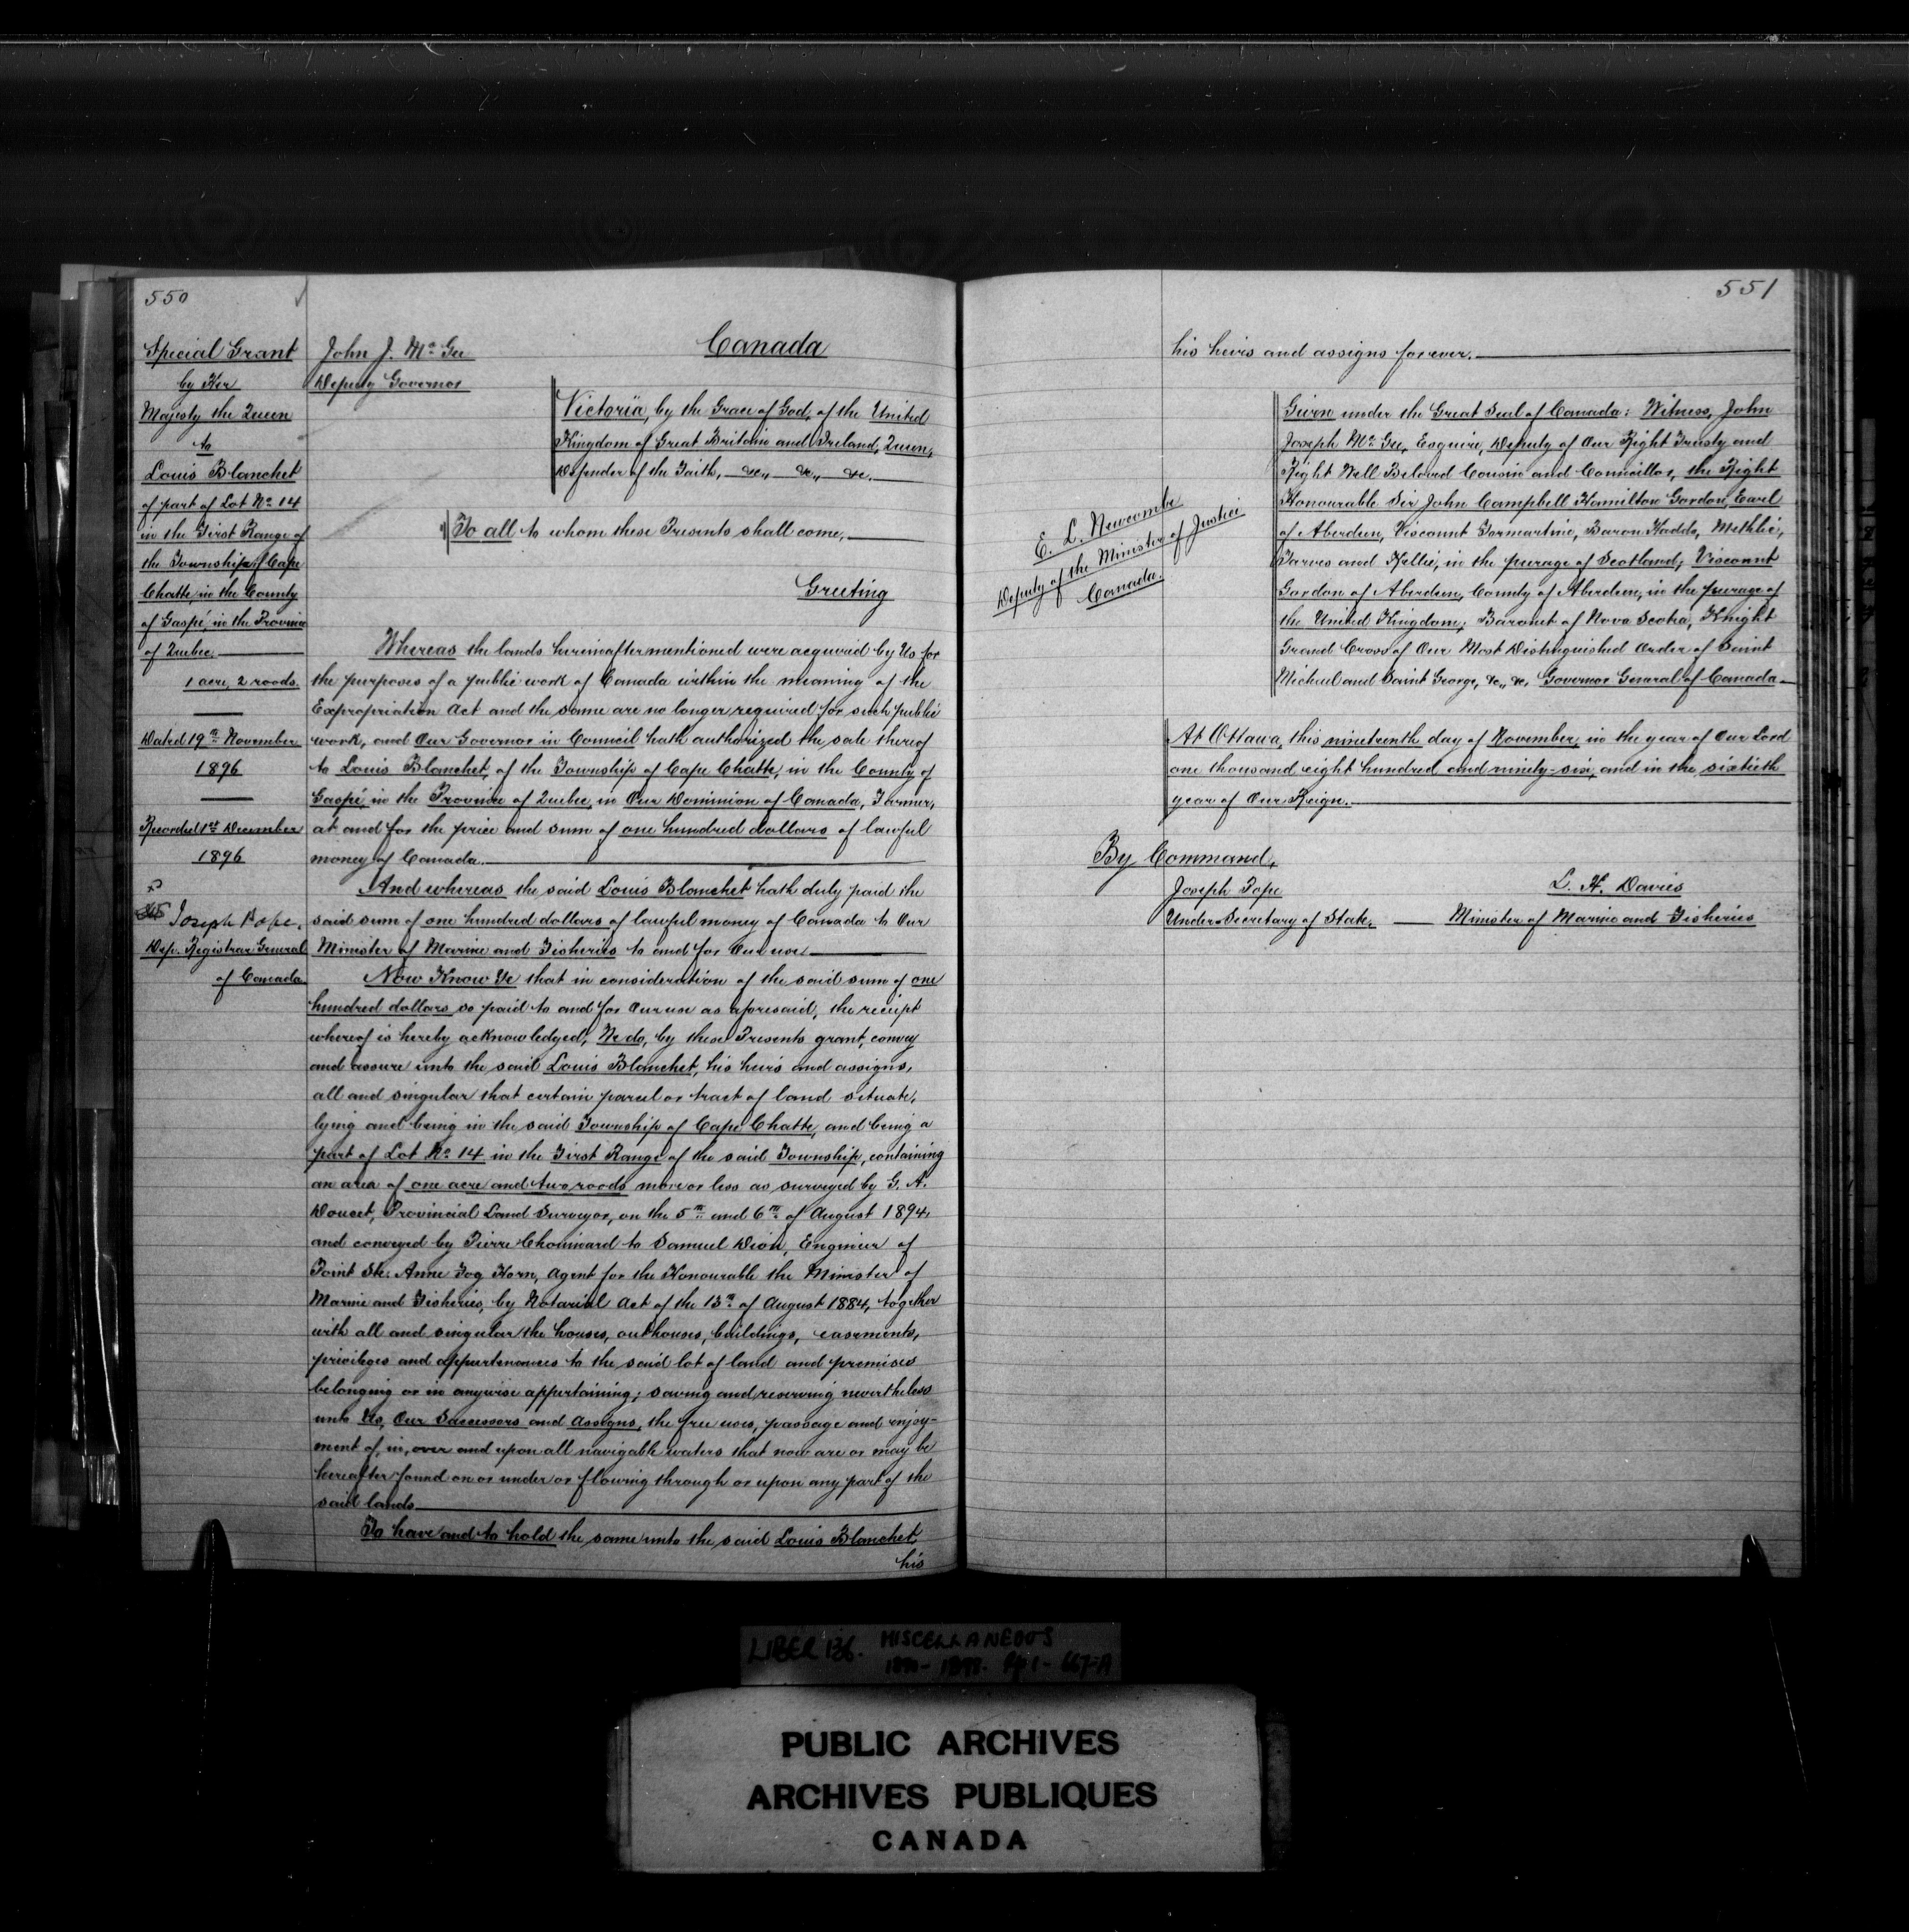 550
Special Grant
by Her
Majesty the Queen
to
Louis Blanchet
of part of Lot No. 14
in the First Range of
the Township of Cape
Chatte, in the County
of Gaspé, in the Province
of Quebec.
1 acre, 2 roods.
Dated 19th November
1896
Recorded 1st December
1896
Joseph Pope,
Dep. Registrar General
of Canada
John J. McGee
Deputy Governor
Canada
Victoria, by the Grace of God, of the United
Kingdom of Great Britain and Ireland, Queen,
Defender of the Faith, &c., &c., &c.
To all to whom these Presents shall come,
Greeting
Whereas the lands hereinafter mentioned were acquired by Us for
the purposes of a public work of Canada within the meaning of the
Expropriation Act and the same are no longer required for such public
work, and Our Governor in Council hath authorized the sale thereof
to Louis Blanchet, of the Township of Cape Chatte, in the County of
Gaspé, in the Province of Quebec, in Our Dominion of Canada, Farmer,
at and for the price and sum of one hundred dollars of lawful
money of Canada.
And whereas the said Louis Blanchet hath duly paid the
said sum of one hundred dollars of lawful money of Canada to Our
Minister of Marine and Fisheries to and for Our use
Now Know Ye that in consideration of the said sum of one
hundred dollars so paid to and for Our use as aforesaid, the receipt
whereof is hereby acknowledged, We do, by these Presents grant, convey
and assure unto the said Louis Blanchet, his heirs and assigns,
all and singular that certain parcel or tract of land situate,
lying and being in the said Township of Cape Chatte, and being a
part of Lot No. 14 in the First Range of the said Township, containing
an area of one acre and two roods more or less as surveyed by G. A.
Doucet, Provincial Land Surveyor, on the 5th and 6th of August 1894,
and conveyed by Pierre Chouinard to Samuel Dion, Engineer of
Point Ste. Anne Fog Horn, Agent for the Honourable the Minister of
Marine and Fisheries, by Notarial Act of the 13th of August 1884, together
with all and singular the houses, outhouses, buildings, easements,
privileges and appurtenances to the said lot of land and premises
belonging or in anywise appertaining; saving and reserving nevertheless
unto Us, Our Successors and Assigns, the free uses, passage and enjoy-
ment of, in, over and upon all navigable waters that now are or may be
hereafter found on or under or flowing through or upon any part of the
said lands
To have and to hold the same unto the said Louis Blanchet,
his
551
his heirs and assigns forever.
E. L. Newcombe
Deputy of the Minister of Justice
Canada.
Given under the Great Seal of Canada: Witness, John
Joseph McGee, Esquire, Deputy of Our Right Trusty and
Right Well Beloved Cousin and Councillor, the Right
Honourable Sir John Campbell Hamilton Gordon, Earl
of Aberdeen, Viscount Formartine, Baron Haddo, Methlic,
Tarves and Kellie, in the peerage of Scotland; Viscount
Gordon of Aberdeen, County of Aberdeen, in the peerage of
the United Kingdom; Baronet of Nova Scotia, Knight
Grand Cross of Our Most Distinguished Order of Saint
Michael and Saint George, &c., &c. Governor General of Canada
At Ottawa, this nineteenth day of November, in the year of Our Lord
one thousand eight hundred and ninety-six, and in the sixtieth
year of Our Reign.
By Command,
Joseph Pope
Under Secretary of State.
L. H. Davies
Minister of Marine and Fisheries
LIBER 136. MISCELLANEOUS
PUBLIC ARCHIVES
ARCHIVES PUBLIQUES
CANADA